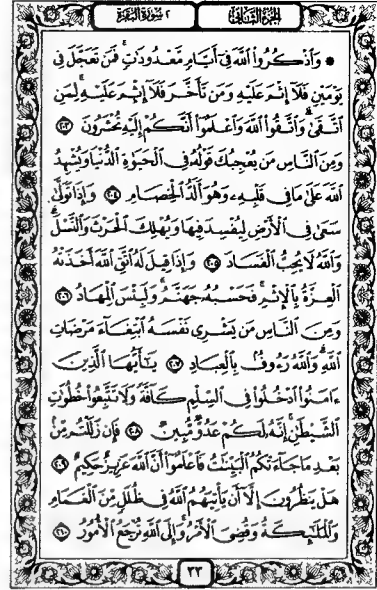 الجزء الثاني ٢ سورة البقرة
۞ وَٱذْكُرُوا۟ ٱللَّهَ فِىٓ أَيَّامٍ مَّعْدُودَٰتٍ ۚ فَمَن تَعَجَّلَ فِى
يَوْمَيْنِ فَلَآ إِثْمَ عَلَيْهِ وَمَن تَأَخَّرَ فَلَآ إِثْمَ عَلَيْهِ ۚ لِمَنِ
ٱتَّقَىٰ ۗ وَٱتَّقُوا۟ ٱللَّهَ وَٱعْلَمُوٓا۟ أَنَّكُمْ إِلَيْهِ تُحْشَرُونَ ٢٠٣
وَمِنَ ٱلنَّاسِ مَن يُعْجِبُكَ قَوْلُهُۥ فِى ٱلْحَيَوٰةِ ٱلدُّنْيَا وَيُشْهِدُ
ٱللَّهَ عَلَىٰ مَا فِى قَلْبِهِۦ وَهُوَ أَلَدُّ ٱلْخِصَامِ ٢٠٤ وَإِذَا تَوَلَّىٰ
سَعَىٰ فِى ٱلْأَرْضِ لِيُفْسِدَ فِيهَا وَيُهْلِكَ ٱلْحَرْثَ وَٱلنَّسْلَ ۗ
وَٱللَّهُ لَا يُحِبُّ ٱلْفَسَادَ ٢٠٥ وَإِذَا قِيلَ لَهُ ٱتَّقِ ٱللَّهَ أَخَذَتْهُ
ٱلْعِزَّةُ بِٱلْإِثْمِ ۚ فَحَسْبُهُۥ جَهَنَّمُ ۚ وَلَبِئْسَ ٱلْمِهَادُ ٢٠٦
وَمِنَ ٱلنَّاسِ مَن يَشْرِى نَفْسَهُ ٱبْتِغَآءَ مَرْضَاتِ
ٱللَّهِ ۗ وَٱللَّهُ رَءُوفٌۢ بِٱلْعِبَادِ ٢٠٧ يَٰٓأَيُّهَا ٱلَّذِينَ
ءَامَنُوا۟ ٱدْخُلُوا۟ فِى ٱلسِّلْمِ كَآفَّةً وَلَا تَتَّبِعُوا۟ خُطُوَٰتِ
ٱلشَّيْطَٰنِ ۚ إِنَّهُۥ لَكُمْ عَدُوٌّ مُّبِينٌ ٢٠٨ فَإِن زَلَلْتُم مِّنۢ
بَعْدِ مَا جَآءَتْكُمُ ٱلْبَيِّنَٰتُ فَٱعْلَمُوٓا۟ أَنَّ ٱللَّهَ عَزِيزٌ حَكِيمٌ ٢٠٩
هَلْ يَنظُرُونَ إِلَّآ أَن يَأْتِيَهُمُ ٱللَّهُ فِى ظُلَلٍ مِّنَ ٱلْغَمَامِ
وَٱلْمَلَٰٓئِكَةُ وَقُضِىَ ٱلْأَمْرُ ۚ وَإِلَى ٱللَّهِ تُرْجَعُ ٱلْأُمُورُ ٢١٠
٣٣